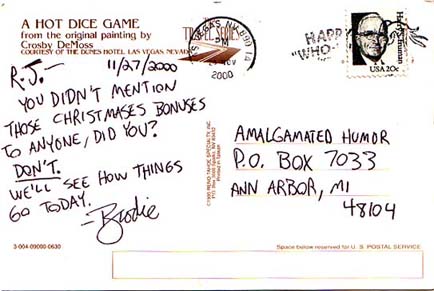 A HOT DICE GAME
from the original painting by
Crosby DeMoss
COURTESY OF THE DUNES HOTEL LAS VEGAS NEVADA
TRAVEL SERIES
PM
NOV
2000
HAPPY
"WHO-
Harry S. Truman
USA 20c
R.J.—
11/27/2000
YOU DIDN'T MENTION
THOSE CHRISTMASES BONUSES
TO ANYONE, DID YOU?
DON'T.
WE'LL SEE HOW THINGS
GO TODAY.
—Brodie
Printed in Taiwan
AMALGAMATED HUMOR
P.O. BOX 7033
ANN ARBOR, MI
48104
3-004-09000-0630
Space below reserved for U.S. POSTAL SERVICE